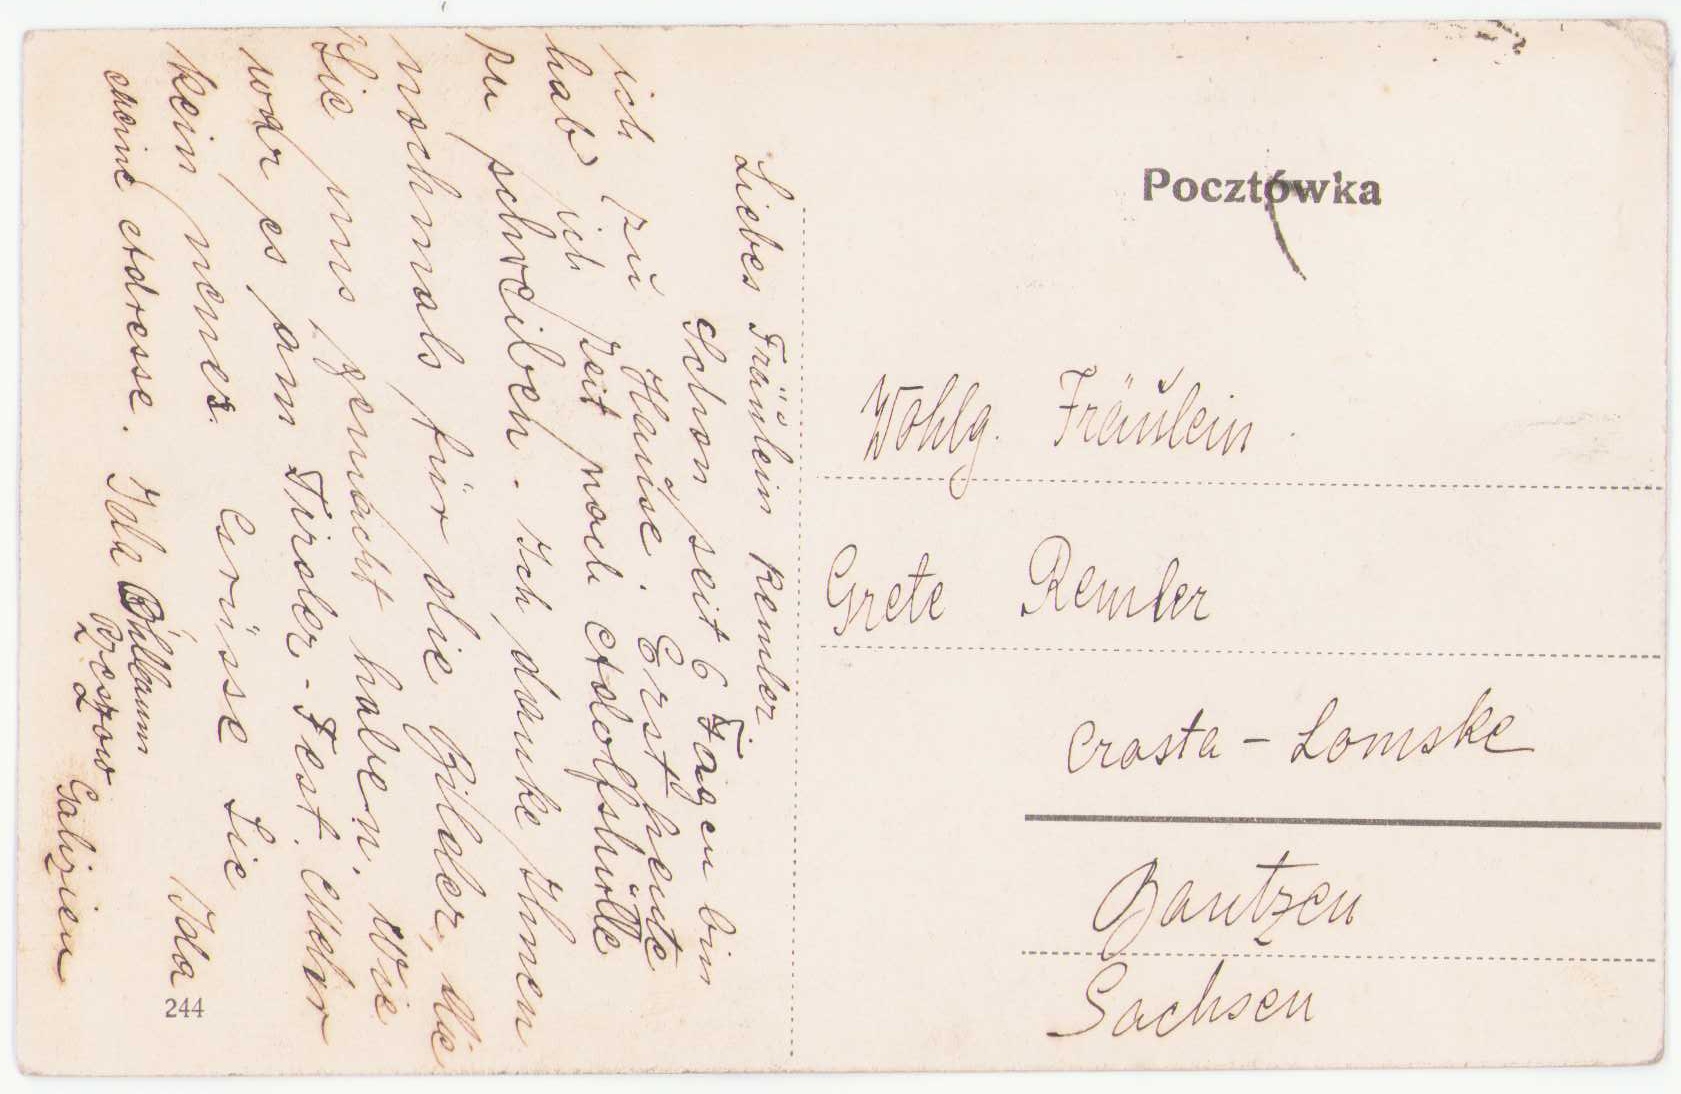 Pocztówka
Liebes Fräulein Remler
Schon seit 6 Tagen bin
ich zu Hause. Erst heute
hab ich Zeit nach Adolfshütte
zu schreiben. Ich danke Ihnen
nochmals für die Bilder, die
Sie uns gemacht haben. Wie
war es am Tiroler-Fest. Mehr
kein neues. Grüsse Sie
Ida
Meine Adresse. Ida
Rzeszow
Galizien
244
Wohlg. Fräulein
Grete Remler
Crosta-Lomske
Bautzen
Sachsen